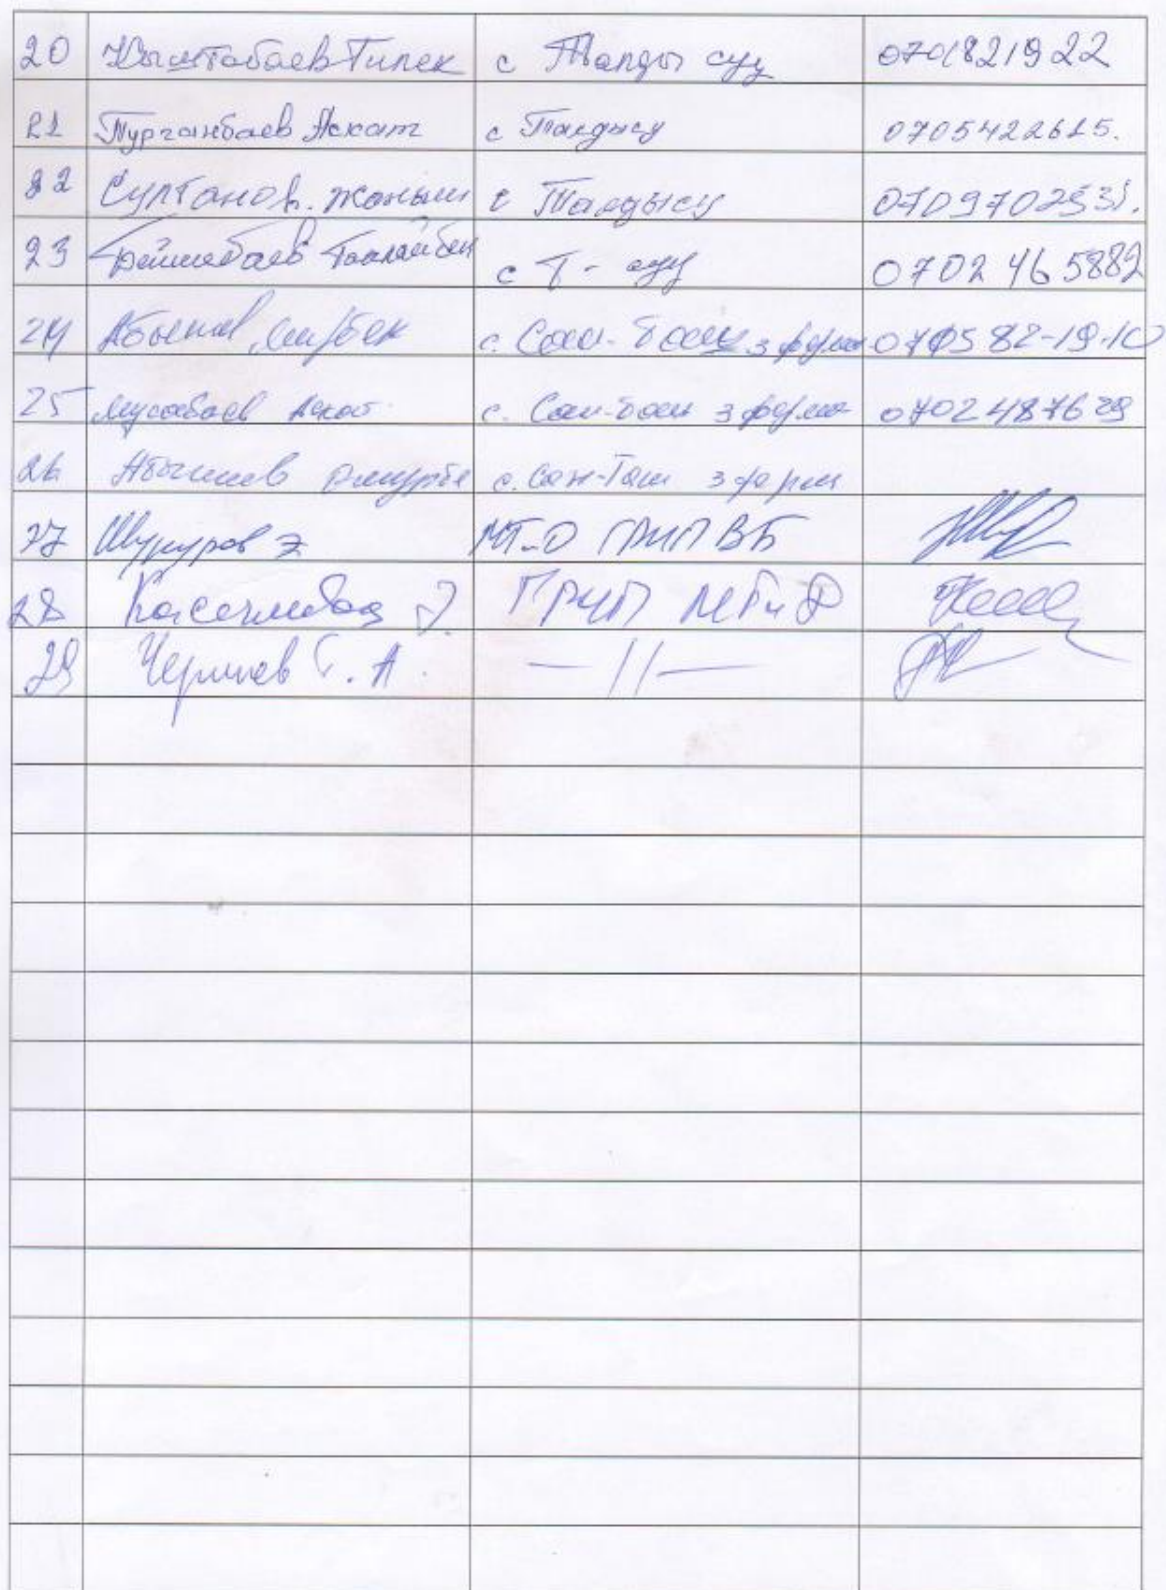 20 Кыштобаев Тилек с Талды суу 0701821922
21 Нурганбаев Аскат с Талдысу 0705422615.
22 Султанов. Жаныш с Талдысу 0709702531.
23 Бейшебаев Таалайбек с Т-суу 0702 465882
24 Абышев с. Сан-Таш 3 ферма 0705 82-19-10
25 Мусабаев Аскат с. Сан-Таш 3 ферма 0702487629
26 Абышев с. Сан-Таш 3 ферма
27 Шукуров Э
28 ПРИП
29 Черимов Г. А. —||—